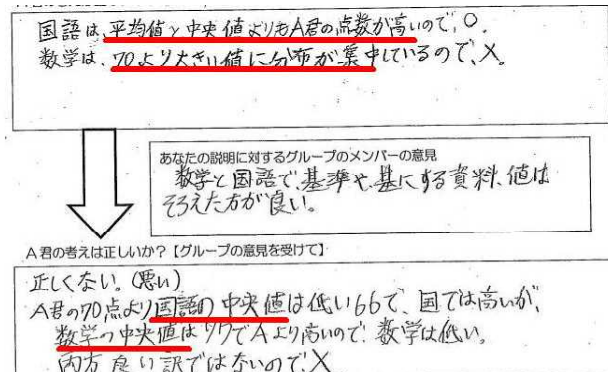 国語は、平均値と中央値よりもA君の点数が高いので、○。
数学は、70より大きい値に分布が集中しているので、×。
あなたの説明に対するグループのメンバーの意見
数学と国語で、基準や、基にする資料、値は
そろえた方が良い。
A君の考えは正しいか?【グループの意見を受けて】
正しくない。(悪い)
A君の70点より国語の中央値は低い66で、国では高いが、
数学の中央値は77でAより高いので、数学は低い。
両方良い訳ではないので、×